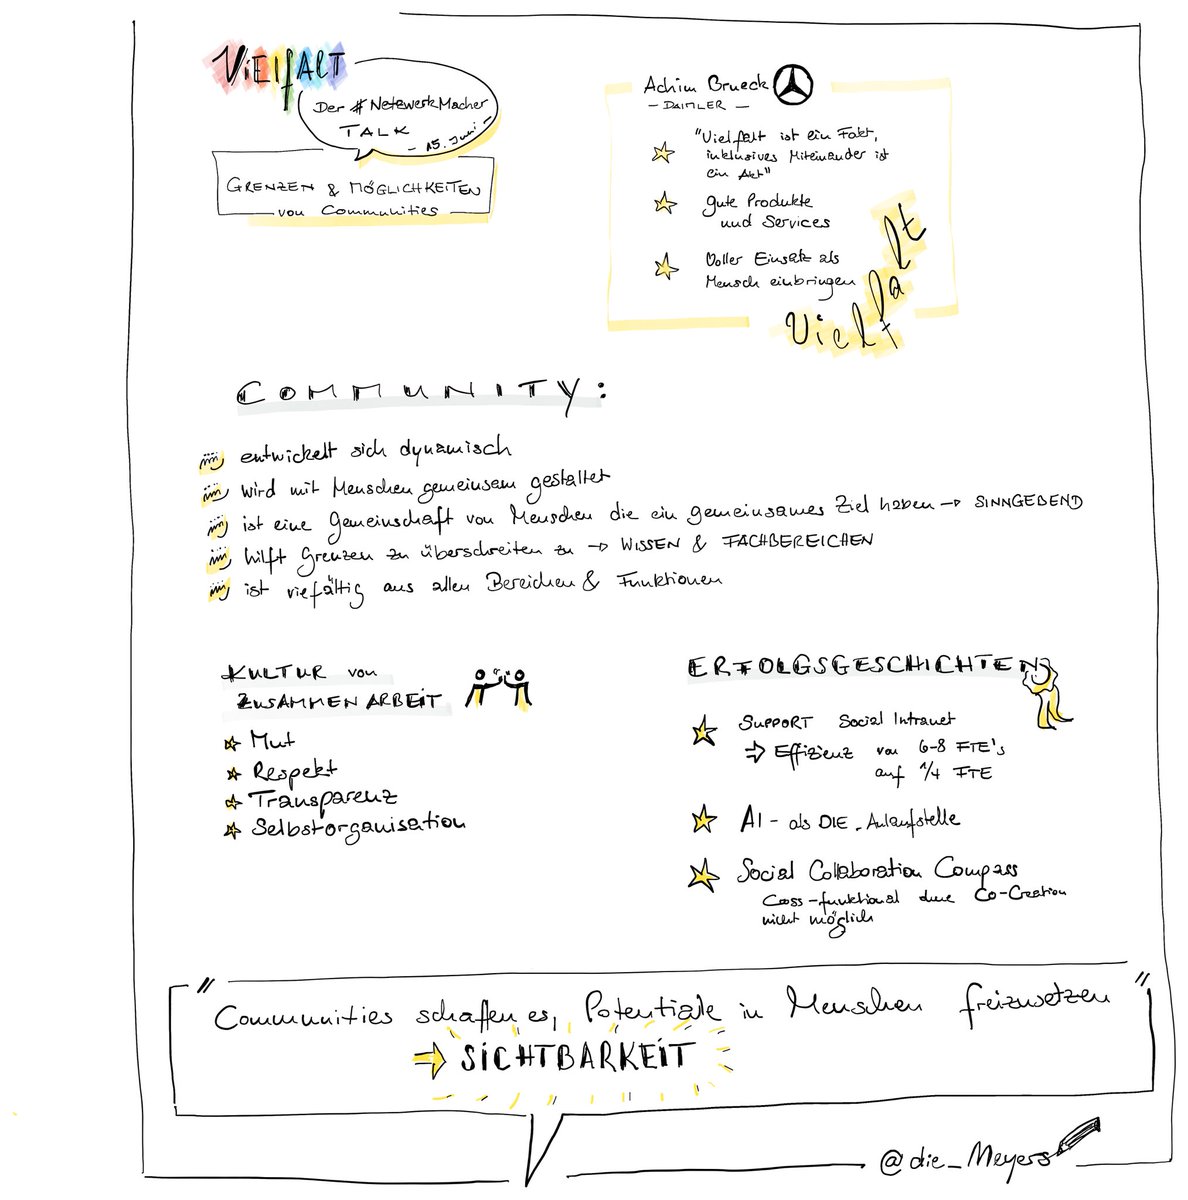 VIELfALT
Der #NetzwerkMacher
TALK
- 15. Juni -
GRENZEN & MÖGLICHKEITEN
von Communities
Achim Brueck
- DAIMLER -
"Vielfalt ist ein Fakt,
inklusives Miteinander ist
ein Akt"
gute Produkte
und Services
Voller Einsatz als
Mensch einbringen
Vielfalt
COMMUNITY:
entwickelt sich dynamisch
wird mit Menschen gemeinsam gestaltet
ist eine Gemeinschaft von Menschen die ein gemeinsames Ziel haben → SINNGEBEND
hilft Grenzen zu überschreiten zu → WISSEN & FACHBEREICHEN
ist vielfältig aus allen Bereichen & Funktionen
KULTUR von
ZUSAMMENARBEIT
Mut
Respekt
Transparenz
Selbstorganisation
ERFOLGSGESCHICHTEN
SUPPORT Social Intranet
⇒ Effizienz von 6-8 FTE's
auf 1/4 FTE
AI - als DIE - Anlaufstelle
Social Collaboration Compass
Cross-funktional ohne Co-Creation
nicht möglich
"Communities schaffen es, Potentiale in Menschen freizusetzen"
⇒ SICHTBARKEIT
@die_Meyers